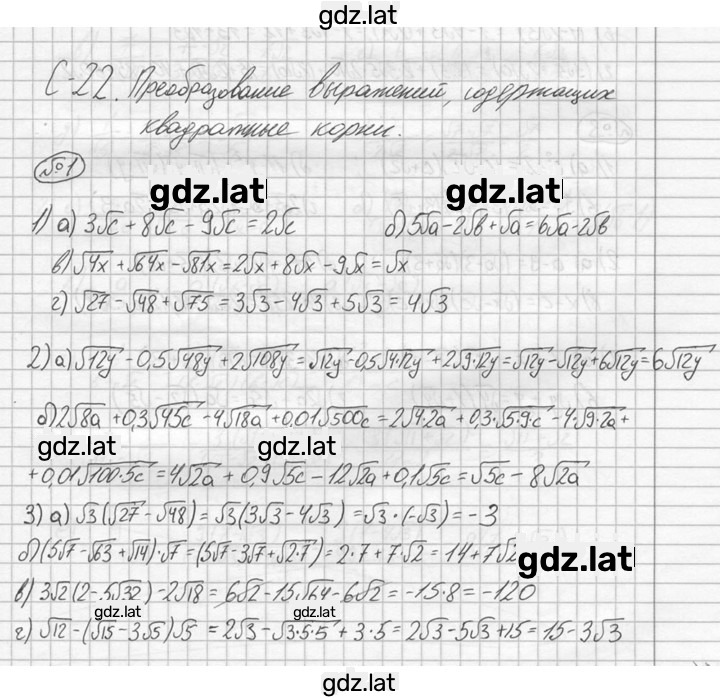 gdz.lat
С-22. Преобразование выражений, содержащих
квадратные корни.
№1
gdz.lat gdz.lat
1) а) 3√c + 8√c - 9√c = 2√c б) 5√a - 2√b + √a = 6√a - 2√b
в) √4x + √64x - √81x = 2√x + 8√x - 9√x = √x
г) √27 - √48 + √75 = 3√3 - 4√3 + 5√3 = 4√3
2) а) √12y - 0,5√48y + 2√108y = √12y - 0,5√4·12y + 2√9·12y = √12y - √12y + 6√12y = 6√12y
б) 2√8a + 0,3√45c - 4√18a + 0,01√500c = 2√4·2a + 0,3·√5·9·c - 4√9·2a +
gdz.lat gdz.lat
+ 0,01√100·5c = 4√2a + 0,9√5c - 12√2a + 0,1√5c = √5c - 8√2a
3) а) √3(√27 - √48) = √3(3√3 - 4√3) = √3·(-√3) = -3
б) (5√7 - √63 + √14)·√7 = (5√7 - 3√7 + √2·7) = 2·7 + 7√2 = 14 + 7√2
gdz.lat
в) 3√2(2 - 5√32) - 2√18 = 6√2 - 15√64 - 6√2 = -15·8 = -120
gdz.lat gdz.lat
г) √12 - (√15 - 3√5)√5 = 2√3 - √3·5·5 + 3·5 = 2√3 - 5√3 + 15 = 15 - 3√3
gdz.lat